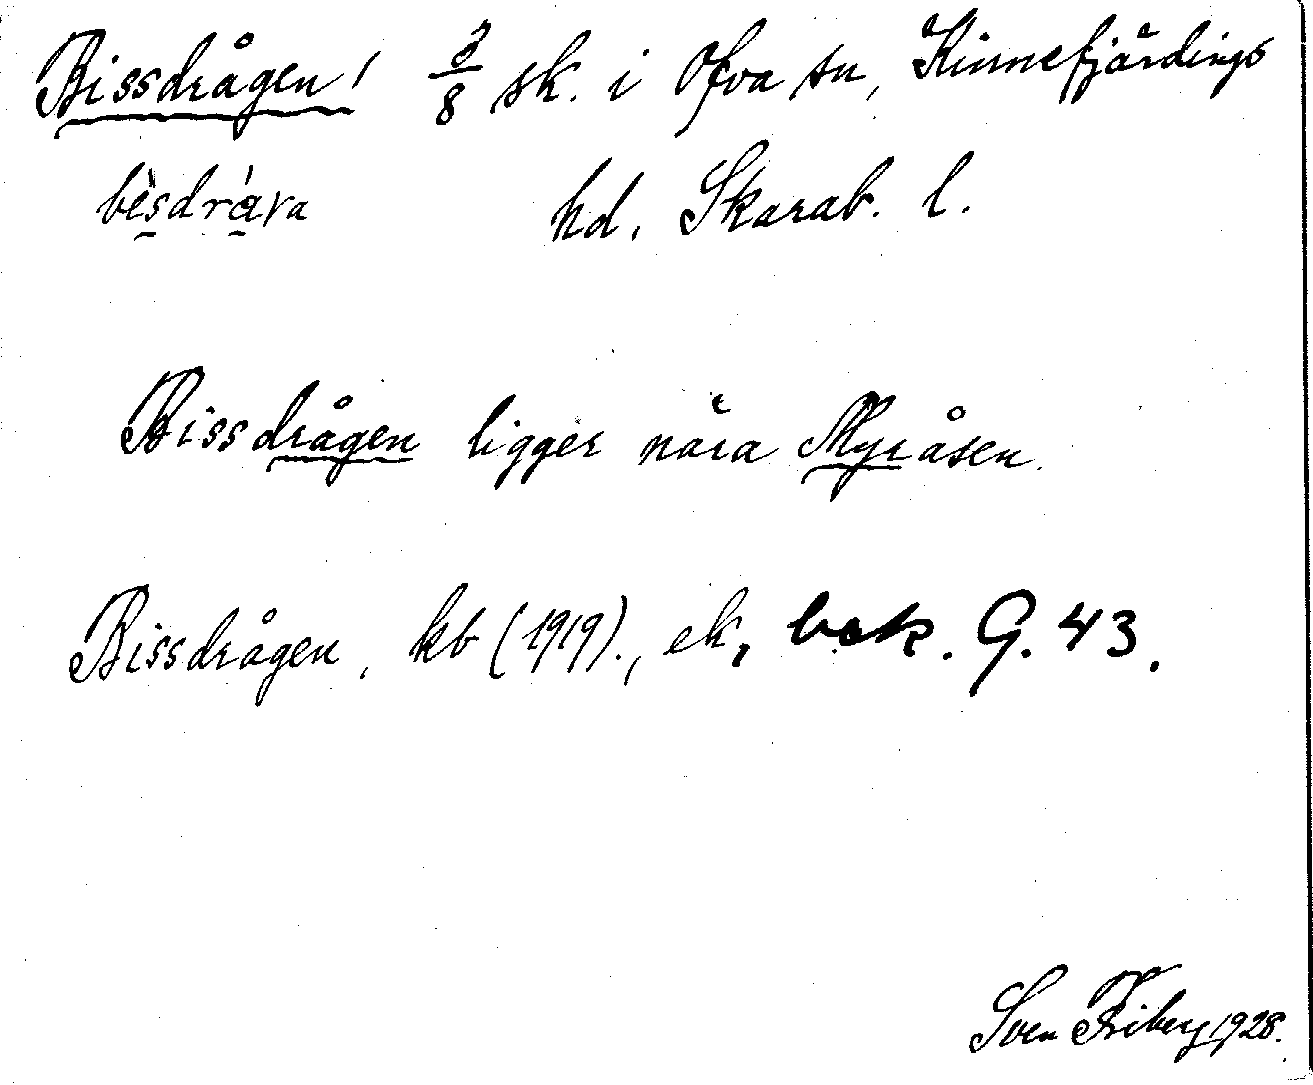 Bissdrågen, 3/8 sk. i Öfva sn, Kinnefjärdings
bèsdráva hd. Skarab. l.
Bissdrågen ligger nära Myråsen.
Bissdrågen, kb (1919)., ek, bek. G. 43.
Sven Friberg 1928.